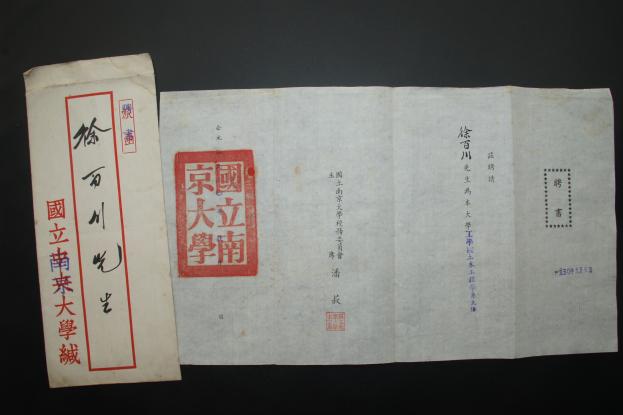 聘書
茲聘請
徐百川先生為本大學工學院土木工程學系主任
國立南京大學校務委員會
主席 潘菽
國立南京大學
聘書
徐百川先生
國立南京大學緘